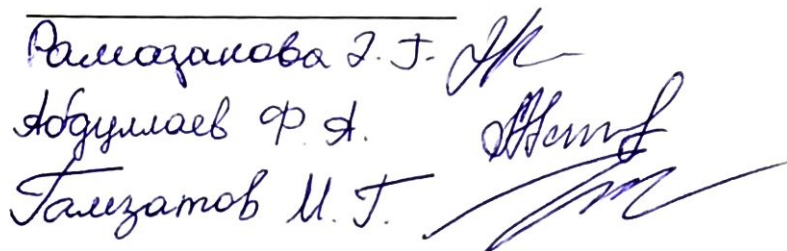 Рамазанова З. Г.
Абдуллаев Ф. А.
Гамзатов М. Г.